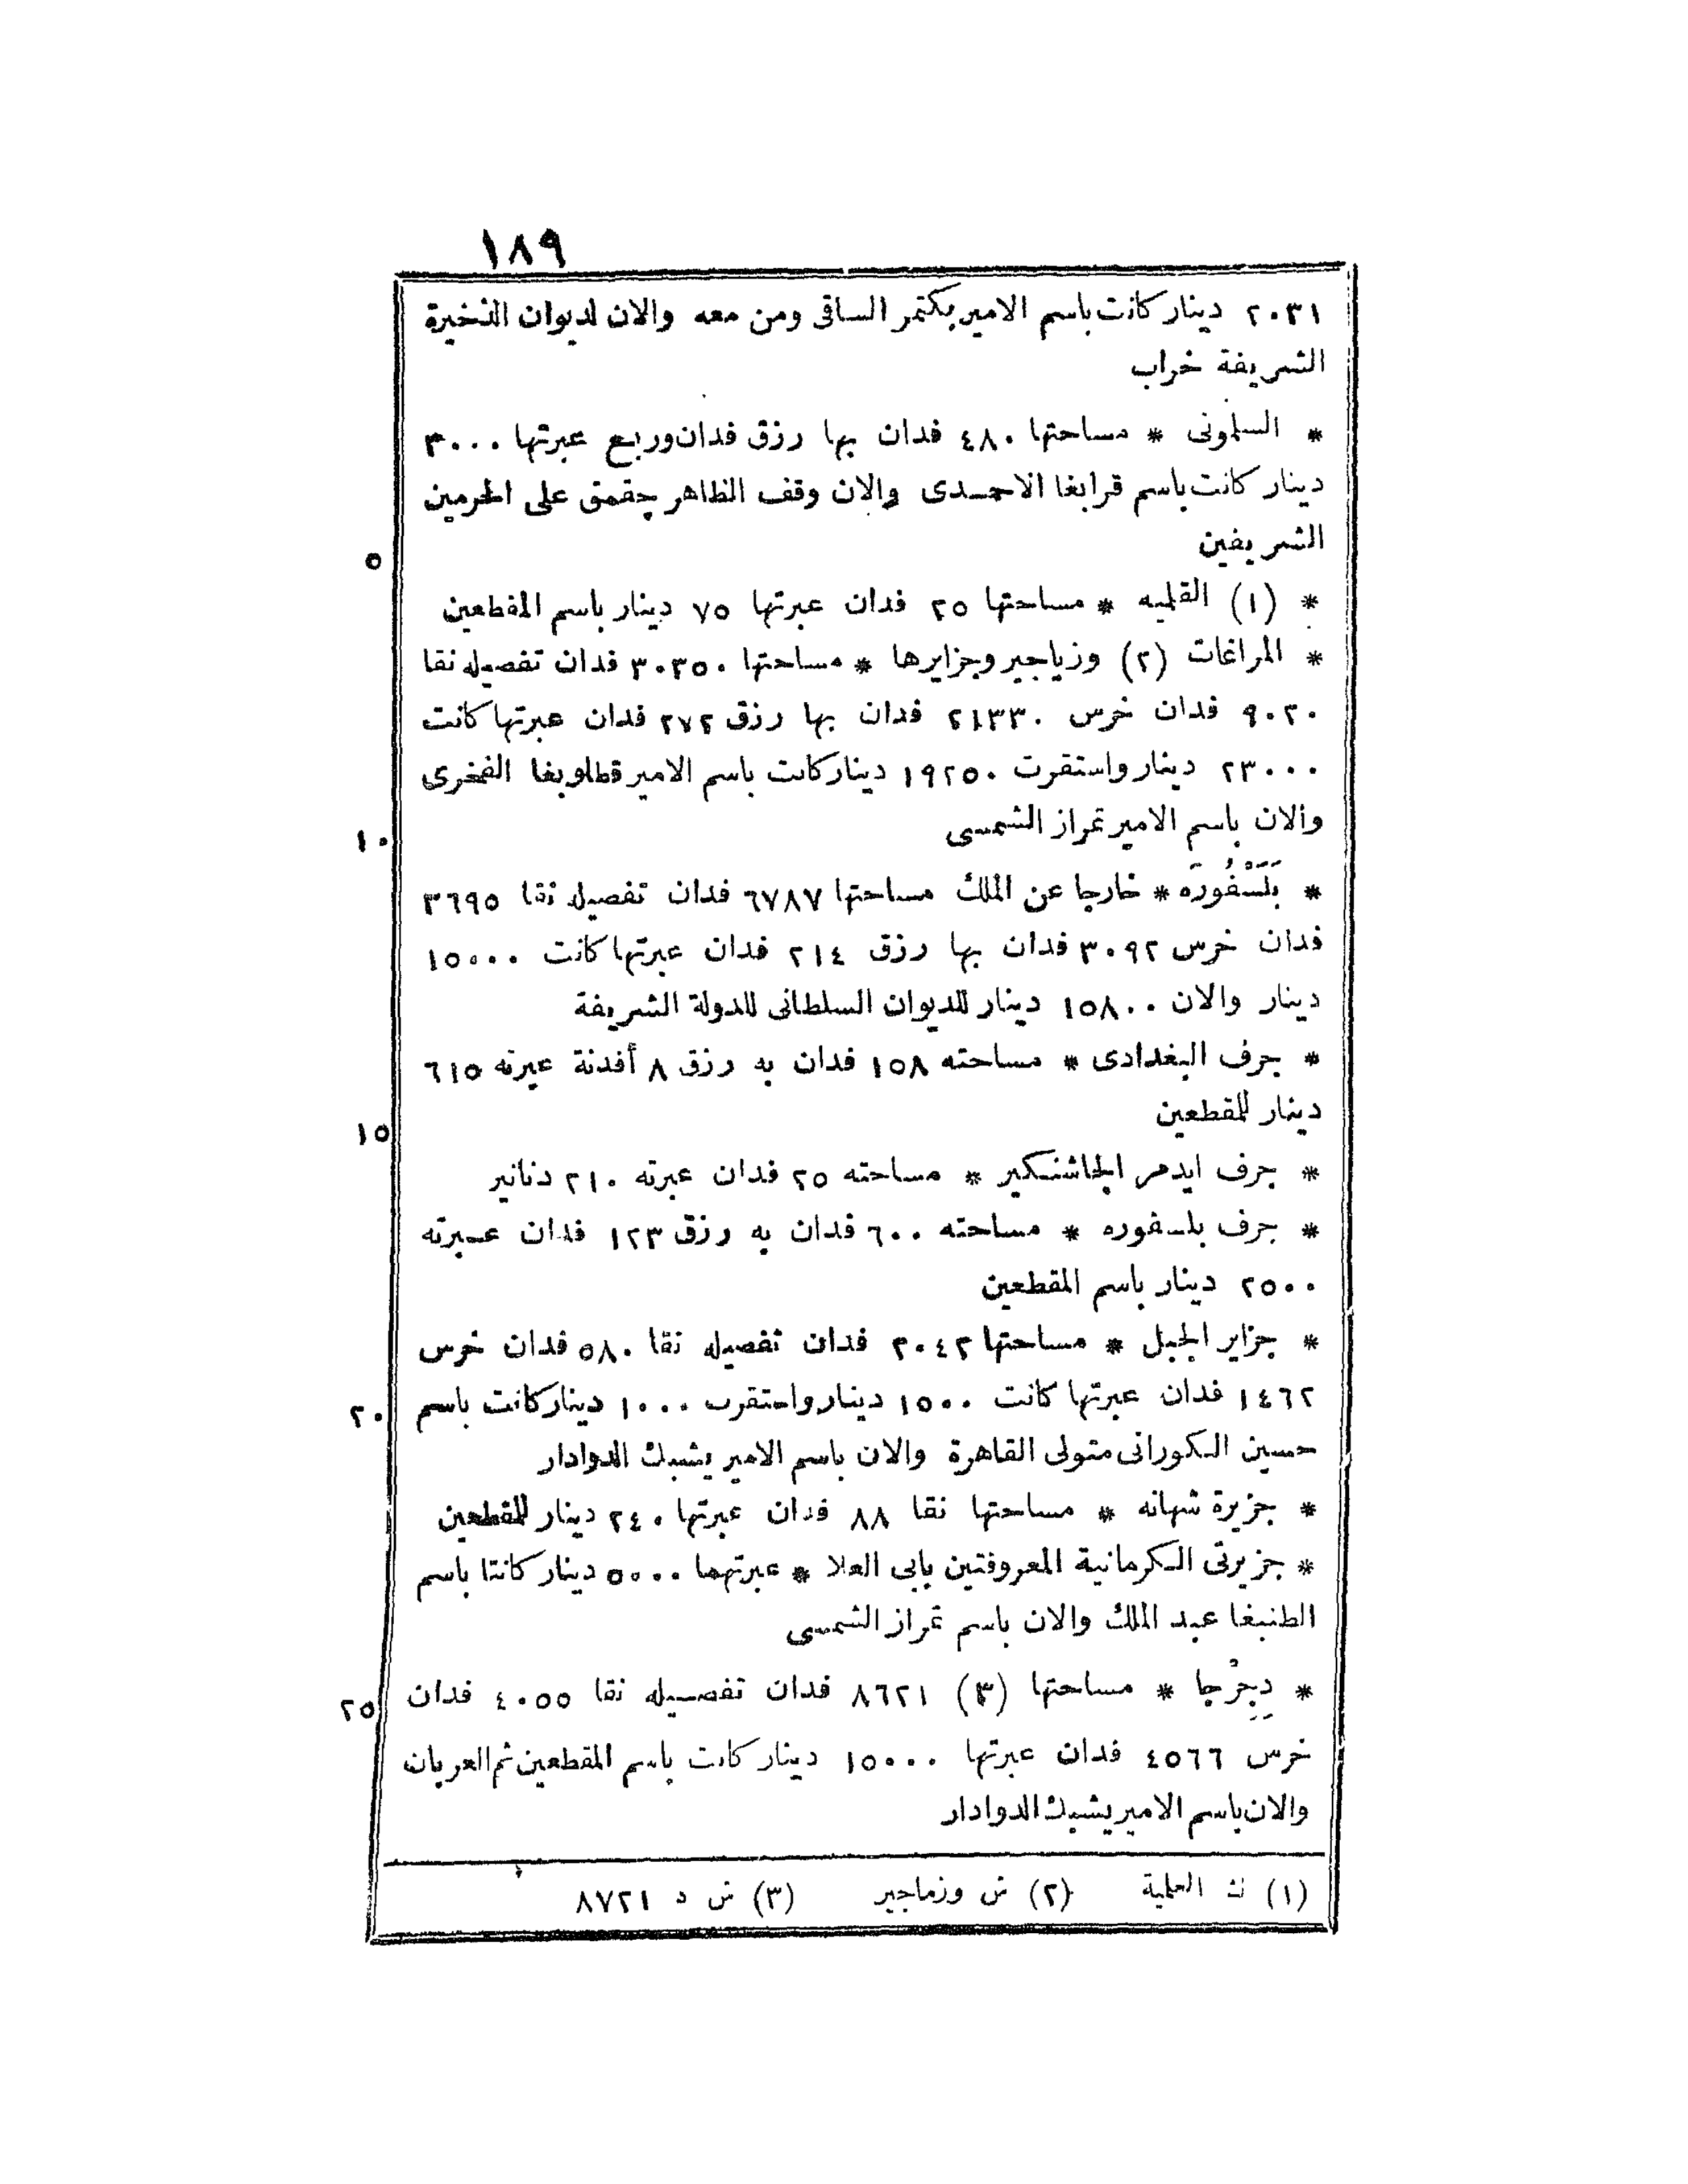 ١٨٩
٢٠٣١ دينار كانت باسم الامير بكتمر الساقى ومن معه والان لديوان الذخيرة
الشريفة خراب
* السلمونى * مساحتها ٤٨٠ فدان بها رزق فدان وربع عبرتها ٣٠٠٠
دينار كانت باسم قرابغا الاحمدى والان وقف الظاهر جقمق على الحرمين
٥ الشريفين
* (١) القلميه * مساحتها ٢٥ فدان عبرتها ٧٥ دينار باسم المقطعين
* المراغات (٢) وزياجير وجزايرها * مساحتها ٣٠٣٥٠ فدان تفصيله نقا
٩٠٢٠ فدان خرس ٢١٣٣٠ فدان بها رزق ٢٧٢ فدان عبرتها كانت
٢٣٠٠٠ دينار واستقرت ١٩٢٥٠ دينار كانت باسم الامير قطلوبغا الفخرى
١٠ والان باسم الامير تمراز الشمسى
* بَلَسْفُورَه * خارجا عن الملك مساحتها ٦٧٨٧ فدان تفصيله نقا ٣٦٩٥
فدان خرس ٣٠٩٢ فدان بها رزق ٢١٤ فدان عبرتها كانت ١٥٠٠٠
دينار والان ١٥٨٠٠ دينار للديوان السلطانى للدولة الشريفة
* جرف البغدادى * مساحته ١٥٨ فدان به رزق ٨ أفدنة عبرته ٦١٥
١٥ دينار للمقطعين
* جرف ايدمر الجاشنكير * مساحته ٢٥ فدان عبرته ٢١٠ دنانير
* جرف بلسفوره * مساحته ٦٠٠ فدان به رزق ١٢٣ فدان عبرته
٢٥٠٠ دينار باسم المقطعين
* جزاير الجبل * مساحتها ٢٠٤٢ فدان تفصيله نقا ٥٨٠ فدان خرس
٢٠ ١٤٦٢ فدان عبرتها كانت ١٥٠٠ دينار واستقرت ١٠٠٠ دينار كانت باسم
حسين الكورانى متولى القاهرة والان باسم الامير يشبك الدوادار
* جزيرة شهانه * مساحتها نقا ٨٨ فدان عبرتها ٢٤٠ دينار للمقطعين
* جزيرتى الكرمانية المعروفتين بابى العلا * عبرتهما ٥٠٠٠ دينار كانتا باسم
الطنبغا عبد الملك والان باسم تمراز الشمسى
٢٥ * دِجِرْجا * مساحتها (٣) ٨٦٢١ فدان تفصيله نقا ٤٠٥٥ فدان
خرس ٤٥٦٦ فدان عبرتها ١٥٠٠٠ دينار كانت باسم المقطعين ثم العربان
والان باسم الامير يشبك الدوادار
(١) ث العلمية (٢) ش وزماجير (٣) ش د ٨٧٢١